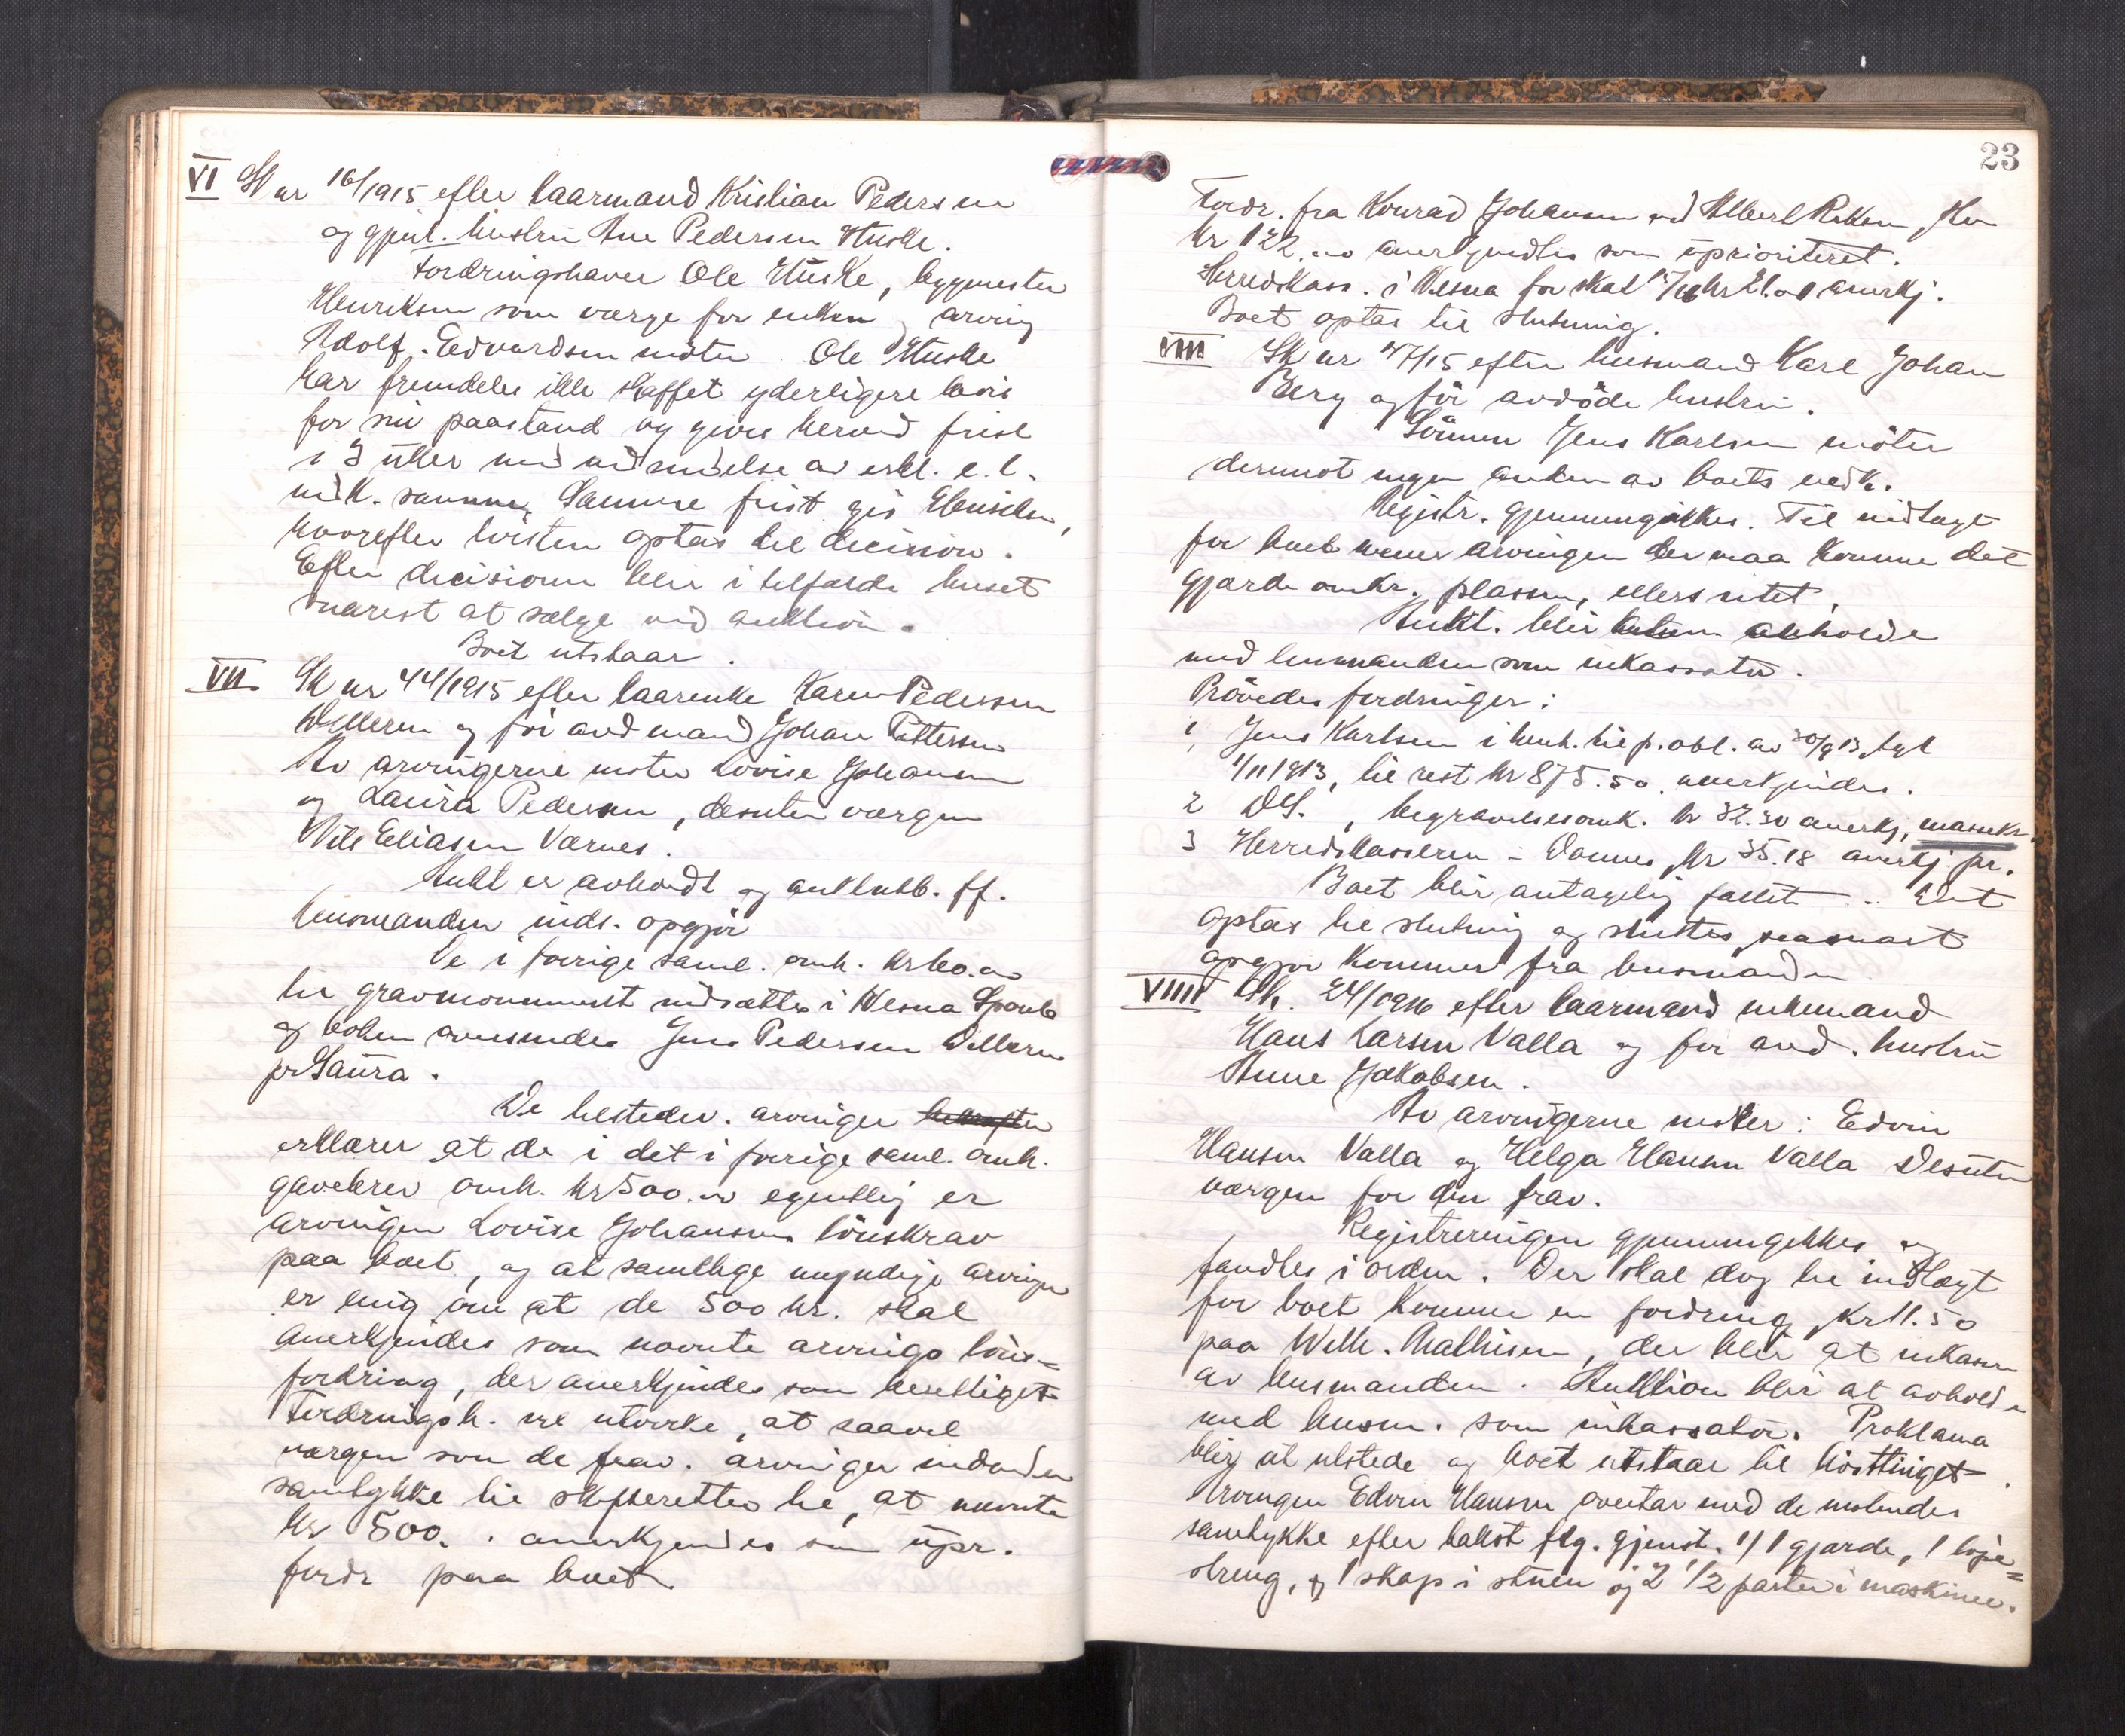 VI Sk nr 16/1915 efter kaarmand Kristian Pedersen
og gjenl. hustru Ane Pedersen Huske.
Fordringshaver Ole Huske, byggmester
Henriksen som værge for enken, arving
Adolf Edvardsen möter. Ole Huske
har fremdeles ikke skaffet yderligere bevis
for sin paastand og gives herved frist
i 3 uker med indsendelse av erkl. e. l.
vedk. samme. Samme frist gis
hvorefter tvisten optas til decision.
Efter decisionen blir i tilfælde huset
snarest at sælge ved auktion.
Boet utstaar.
VII Sk nr 44/1915 efter kaarenke Karen Pedersen
og för avd mand Johan
Av arvingerne möter Lovise Johansen
og Laura Pedersen, desuten værgen
Nils Eliasen Værnes.
Aukt er avholdt og auktutb. ff.
lensmanden inds. opgjör
De i forrige saml. omh. kr 60.00
til gravmonument indsættes i Vesna Spareb
og boken oversendes Jens Pedersen
pr Laura.
De tilstedev. arvinger
erklærer at de i det i forrige saml. omh.
gavebrev omh. kr 500.00 egentlig er
arvingen Lovise Johansens lönskrav
paa boet, og at samtlige myndige arvinger
er enig om at de 500 kr. skal
anerkjendes som nævnte arvings löns=
fordring, der anerkjendes som
Fordringsh. vil utvirke, at saavel
værgen som de frav. arvinger
samtykke til skifteretten til, at nævnte
kr 500. anerkjendes som upr.
fordr paa boet.
23
Fordr. fra Konrad Johansen ved Albert
kr 122.00 anerkjendtes som uprioriteret.
Herredskass. i Vesna for skat anerkj.
Boet optas til slutning.
VIII Sk nr 47/15 efter husmand Karl Johan
Berg og för avdöde hustru.
Sönnen Jens Karlsen möter
derimot ingen anden av boets vedk.
Registr. gjennemgikkes. Til indtægt
for boet mener arvingen der maa komme det
gjærde omkr. plassen, ellers intet.
Aukt. blir avholde
med lensmanden som inkassator.
Prövedes fordringer:
1, Jens Karlsen i henh. til p. obl. av 30/9 13, tgl
1/11 1913, til rest kr 875.50. anerkjendes.
2 DS., begravelsesomk. kr 32.30 anerkj, massekr.
3 Herredskasseren i Dønnes, kr 35.18 anerkj pr.
Boet blir antagelig fallit. Det
optas til slutning og sluttes saasnart
opgjör kommer fra lensmanden
VIIII Sk. 24/1916 efter kaarmand enkemand
Hans Larsen Valla og för avd. hustru
Anne Jakobsen.
Av arvingerne möter: Edvin
Hansen Valla og Helga Hansen Valla Desuten
værgen for den frav.
Registreringen gjennemgikkes og
fandtes i orden. Der skal dog til indtægt
for boet komme en fordring, kr 11.50
paa Wilh. Mathisen, der blir at inkassere
av lensmanden. Auktion blir at avholde
med lensm. som inkassator. Proklama
blir at utstede og boet utstaar til hösttinget.
Arvingen Edvin Hansen overtar med de mötendes
samtykke efter takst flg. gjenst. 1/1 gjærde, 1
streng, og 1 skap i stuen og 2 1/2 parter i maskiner.